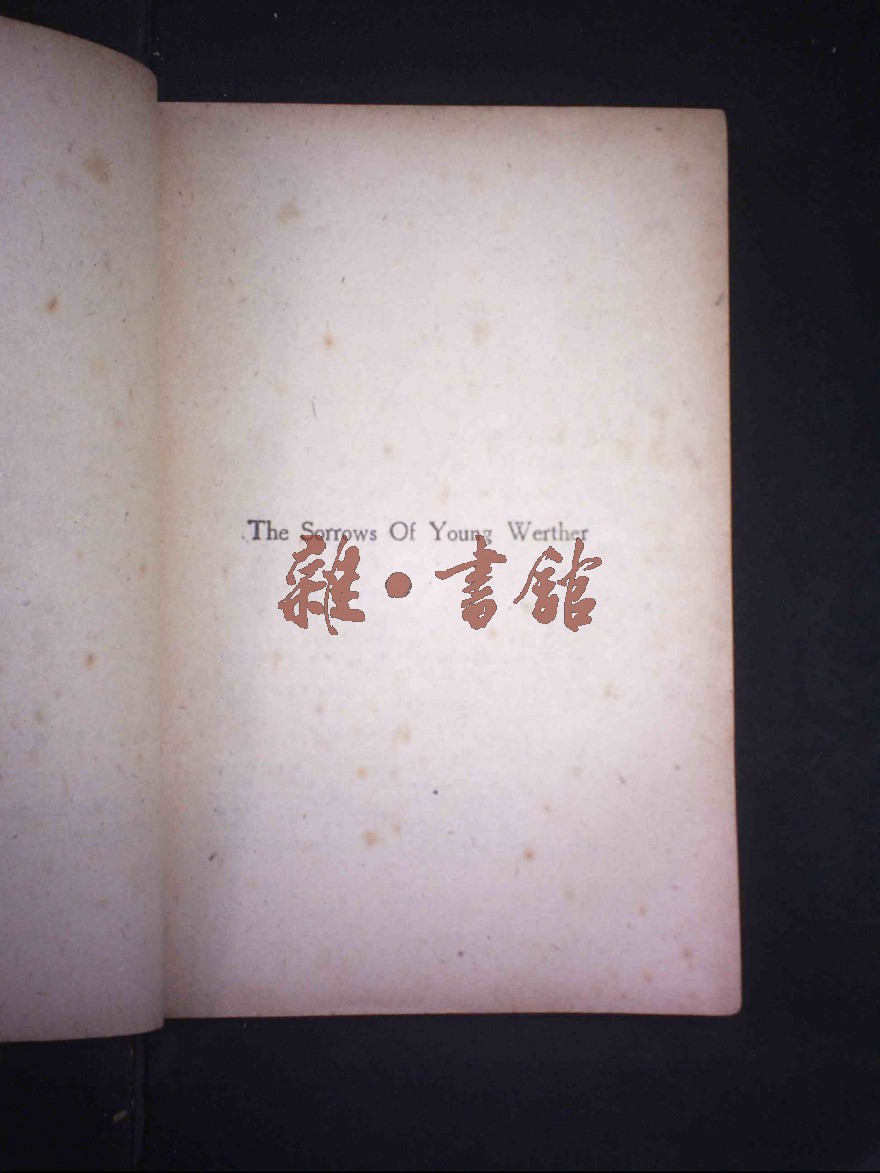 The Sorrows Of Young Werther
雜·書館